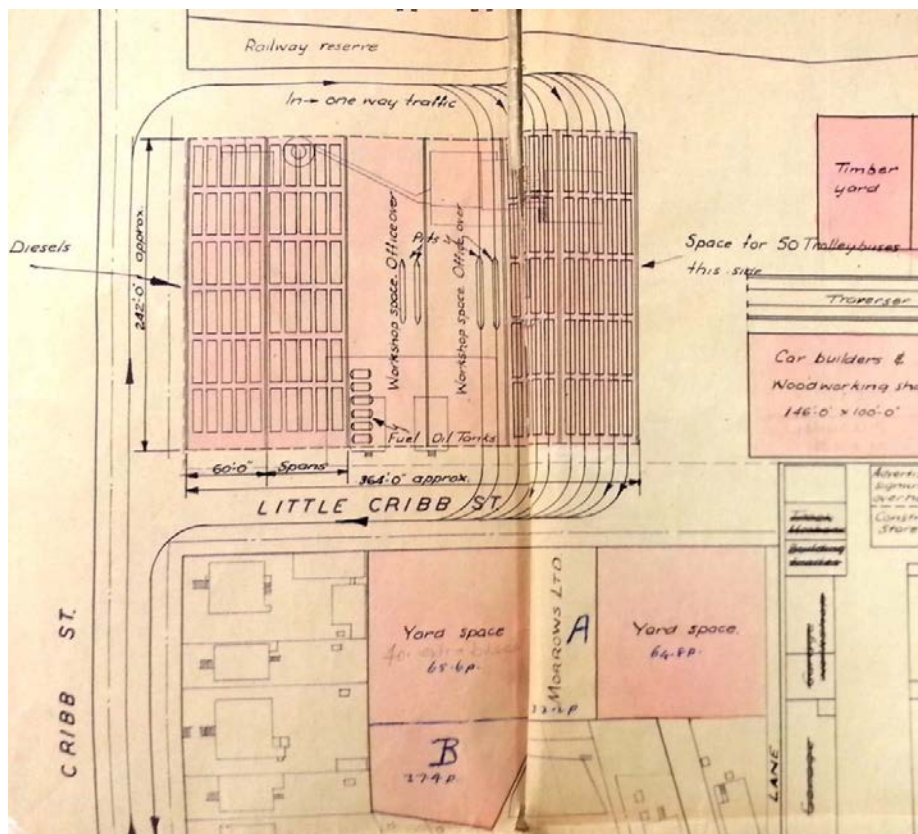 Railway reserve
In → one way traffic
Timber
yard
Diesels
242'-0" approx.
Workshop space. Office over
Pits
Workshop space. Office over
Space for 50 Trolleybuses
this side
Traverser
Car builders &
Woodworking
146'-0" × 100'-0"
Fuel Oil Tanks
60'-0" Spans
364'-0" approx.
LITTLE CRIBB ST.
CRIBB ST.
Yard space
65.6p.
MORROWS LTD.
A
Yard space.
64.8p.
B
27.4p.
LANE
Garage